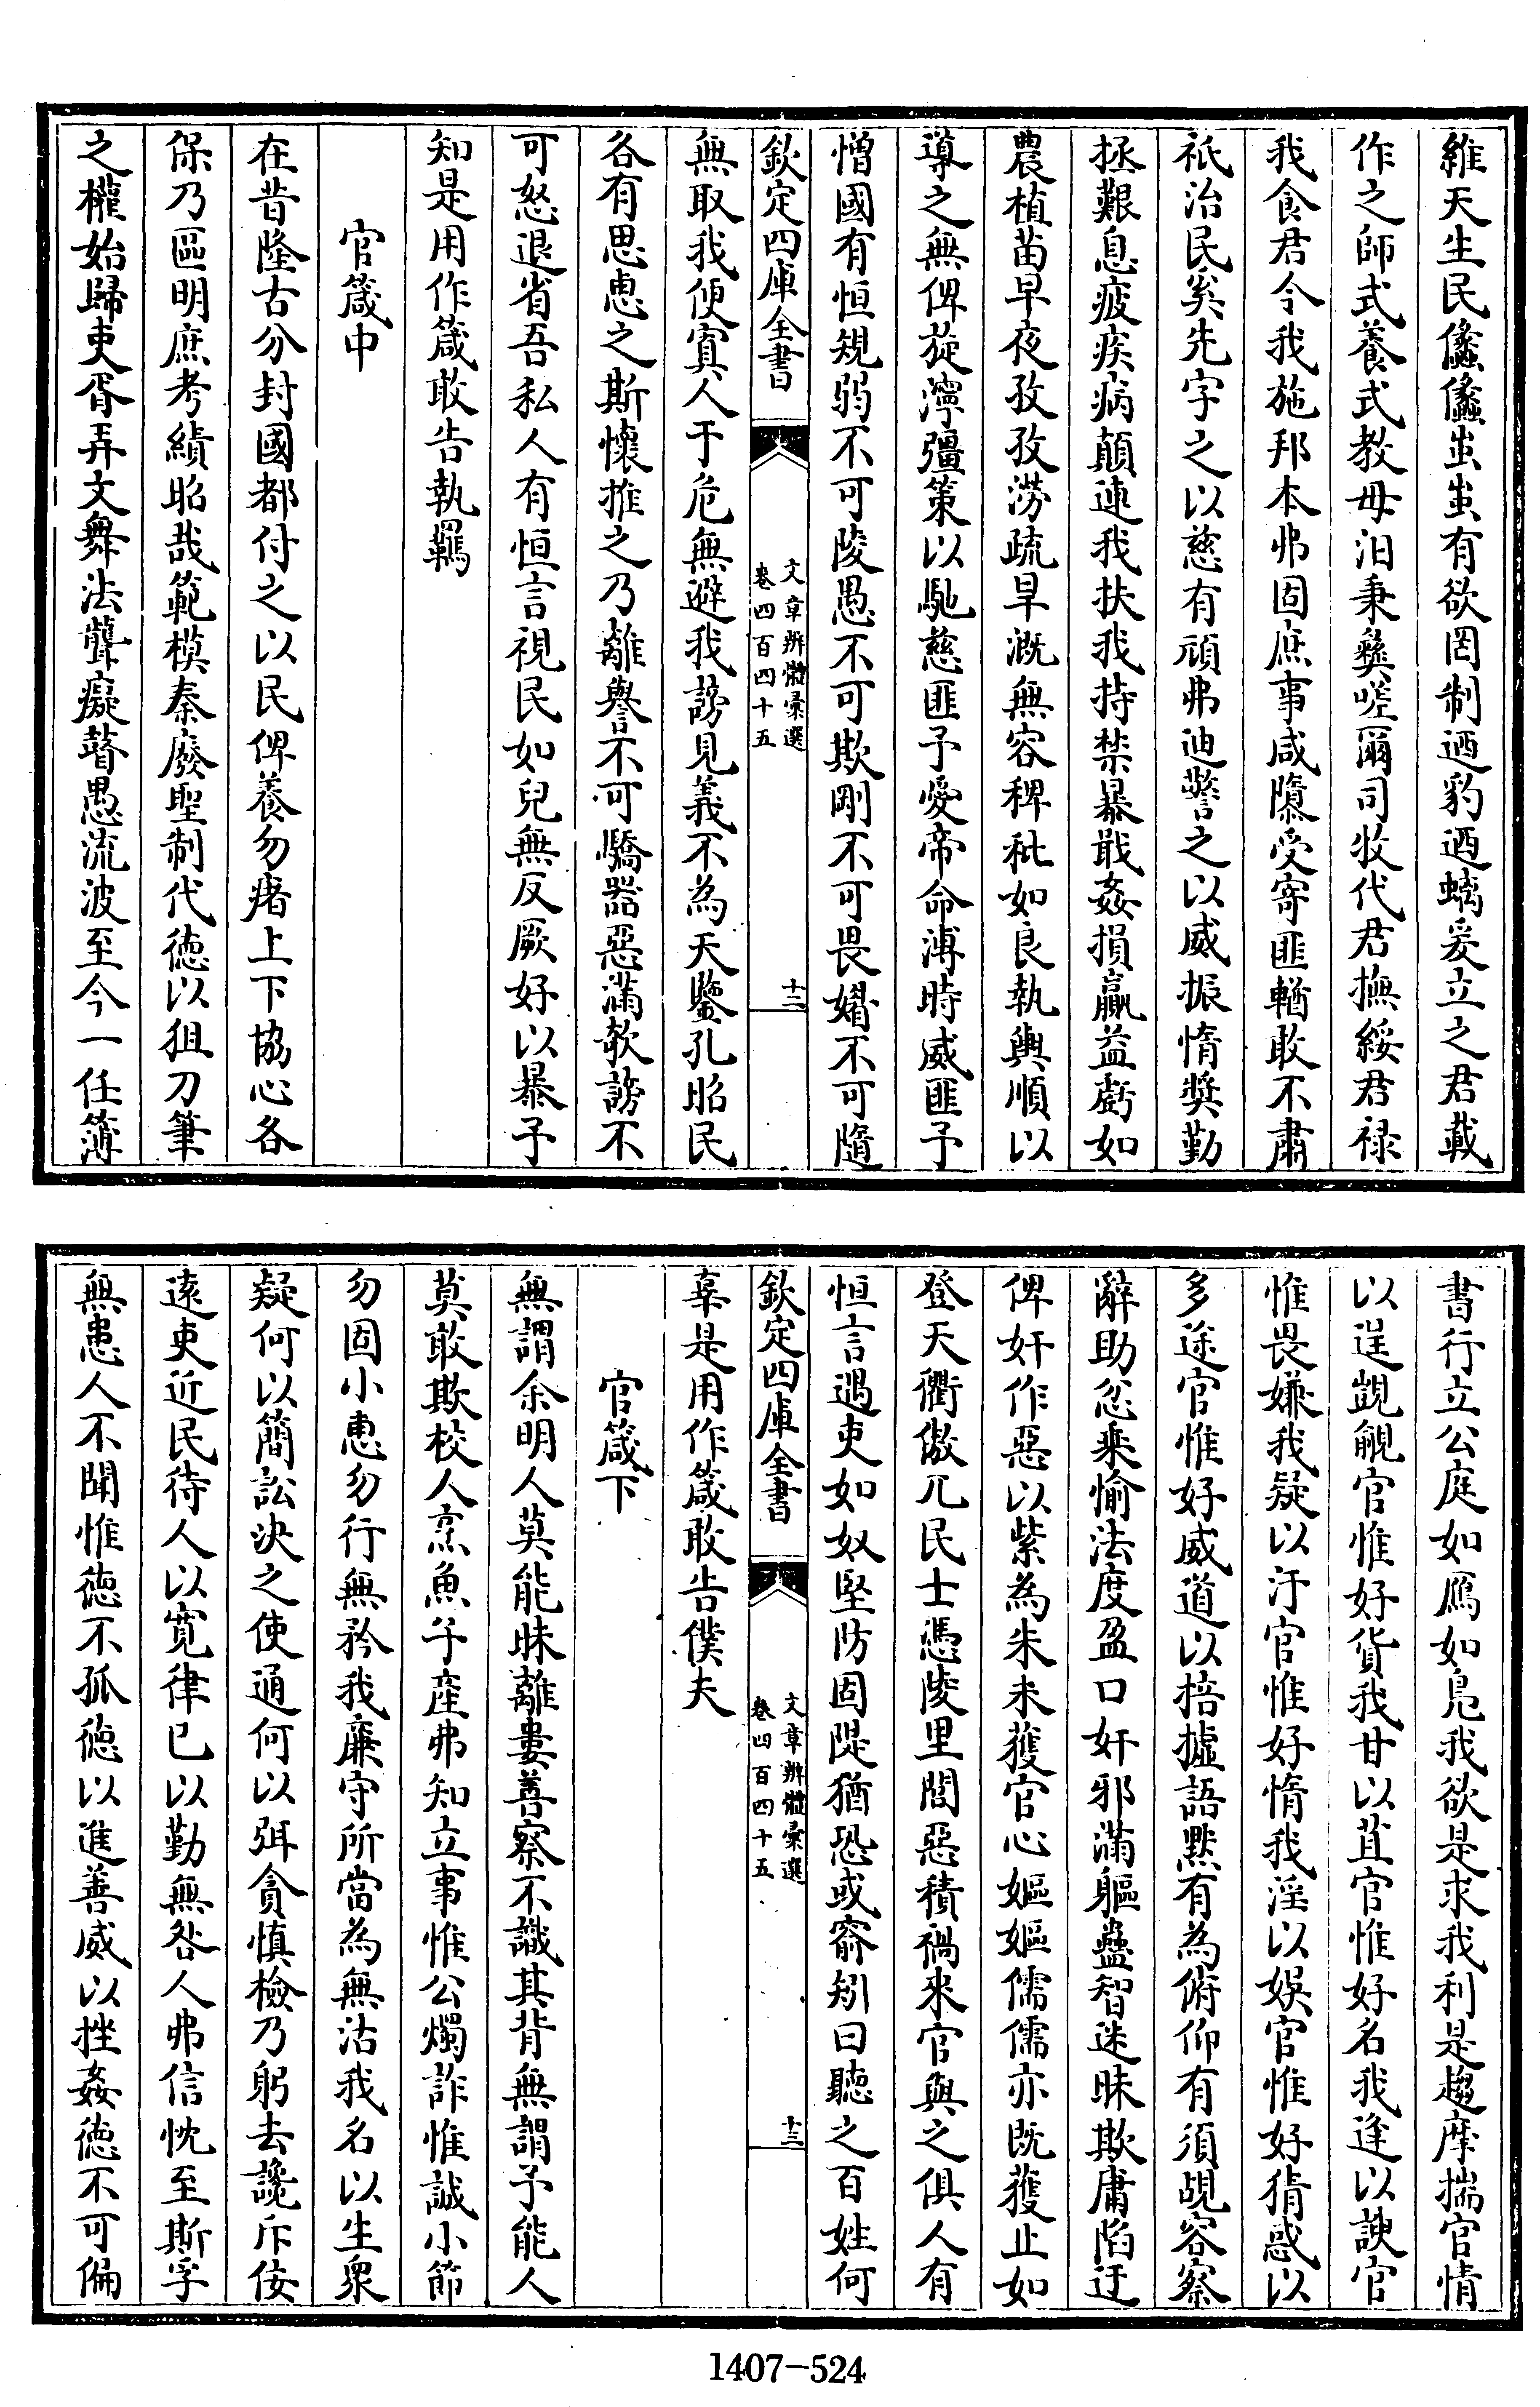 維天生民蠡蠡蚩蚩有欲罔制迺豹迺螭爰立之君載
作之師式養式教毋汨秉彝嗟爾司牧代君撫綏君祿
我食君令我施邦本弗固庶事咸隳受寄匪輶敢不肅
祇治民奚先字之以慈有頑弗迪警之以威振惰奬勤
拯艱息疲疾病顛連我扶我持禁暴戢姦損贏益虧如
農植苗早夜孜孜澇疏旱溉無容稗秕如良執輿順以
導之無俾旋濘彊策以馳慈匪予愛帝命溥時威匪予
憎國有恒規弱不可陵愚不可欺剛不可畏媚不可隨
欽定四庫全書
文章辨體彙選
卷四百四十五
十二
無取我便寘人于危無避我謗見義不為天鑒孔昭民
各有思惠之斯懷推之乃離譽不可驕器惡滿欹謗不
可怒退省吾私人有恒言視民如兒無反厥好以暴予
知是用作箴敢告執羈
官箴中
在昔隆古分封國都付之以民俾養勿瘏上下協心各
保乃區明庶考績昭哉範模秦廢聖制代德以狙刀筆
之權始歸吏胥弄文舞法聾癡瞽愚流波至今一任簿
書行立公庭如鴈如鳧我欲是求我利是趨摩揣官情
以逞覬覦官惟好貨我甘以苴官惟好名我逢以諛官
惟畏嫌我疑以汙官惟好惰我淫以娛官惟好猜惑以
多途官惟好威道以掊摣語黙有為俯仰有須覘容察
辭助忿乘愉法度盈口奸邪滿軀蠱智迷昧欺庸陷迂
俾奸作惡以紫為朱未獲官心嫗嫗儒儒亦既獲止如
登天衢傲兀民士憑陵里閭惡積禍來官與之俱人有
恒言遇吏如奴堅防固隄猶恐或窬矧曰聽之百姓何
欽定四庫全書
文章辨體彙選
卷四百四十五
十三
辜是用作箴敢告僕夫
官箴下
無謂余明人莫能昧離婁善察不識其背無謂予能人
莫敢欺校人烹魚子產弗知立事惟公燭詐惟誠小節
勿固小惠勿行無矜我廉守所當為無沽我名以生衆
疑何以簡訟決之使通何以弭貪慎檢乃躬去讒斥佞
遠吏近民待人以寬律已以勤無咎人弗信忱至斯孚
無患人不聞惟德不孤德以進善威以挫姦德不可偏
1407-524